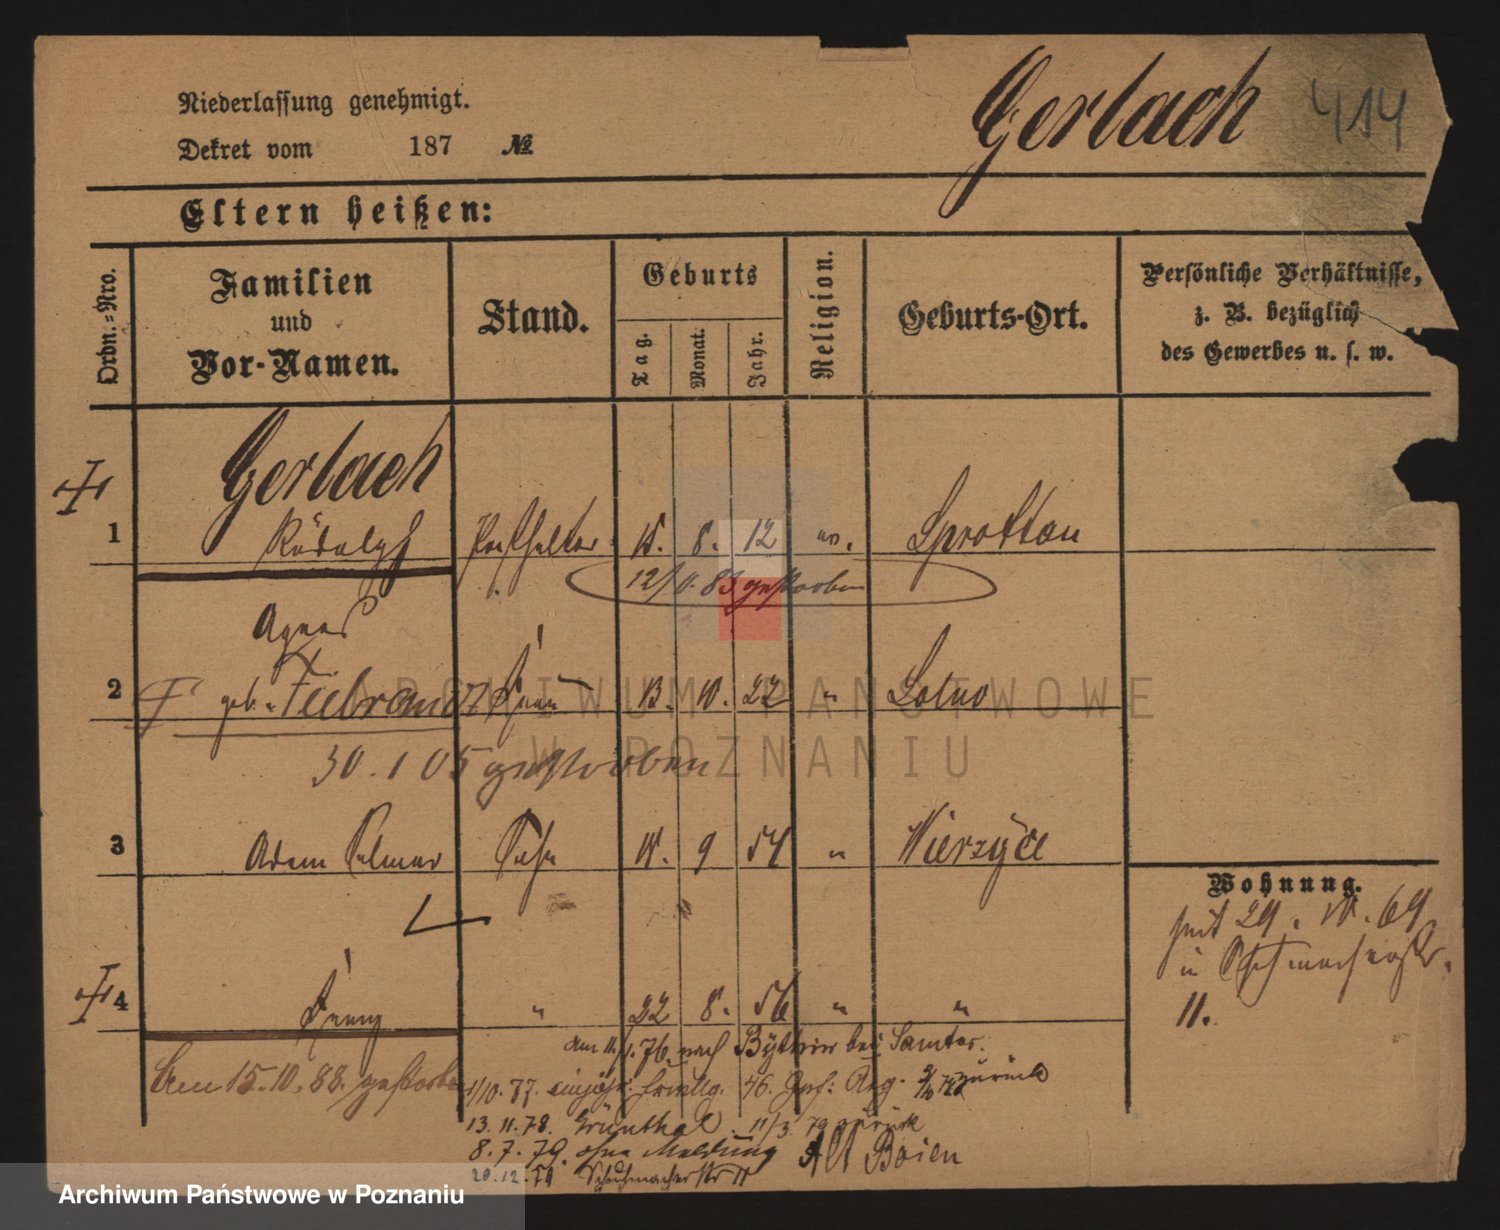 Niederlassung genehmigt.
Gerlach 414
Dekret vom 187 №
Eltern heißen:
Ordn.-Nro.
Familien und Vor-Namen.
Stand.
Geburts
Tag.
Monat.
Jahr.
Religion.
Geburts-Ort.
Persönliche Verhältnisse,
z. B. bezüglich
des Gewerbes u. s. w.
Gerlach
1 Rudolph Posthalter 8. 12 Sprottau
gestorben
Agnes
2 geb. Fiebrandt Frau 13. 10. 22
30. 1 05 gestorben
3 Sohn 9 54 " Wierzyce
Wohnung.
seit 29. 69
in Schuhmacherstr.
11.
4 " 22 8. 56 " "
am 11./1. 76. nach Bythin bei Samter.
Am 15.10.88. gestorben
1/10. 77. einjähr. freiwllg. 46. Inf: Reg. zurück
13. 11. 78. Grünthal. 11/3. 79 zurück
8. 7. 79. ohne Meldung Alt Boien
20.12.79 Schuhmacherstr 11
ARCHIWUM PAŃSTWOWE
W POZNANIU
Archiwum Państwowe w Poznaniu